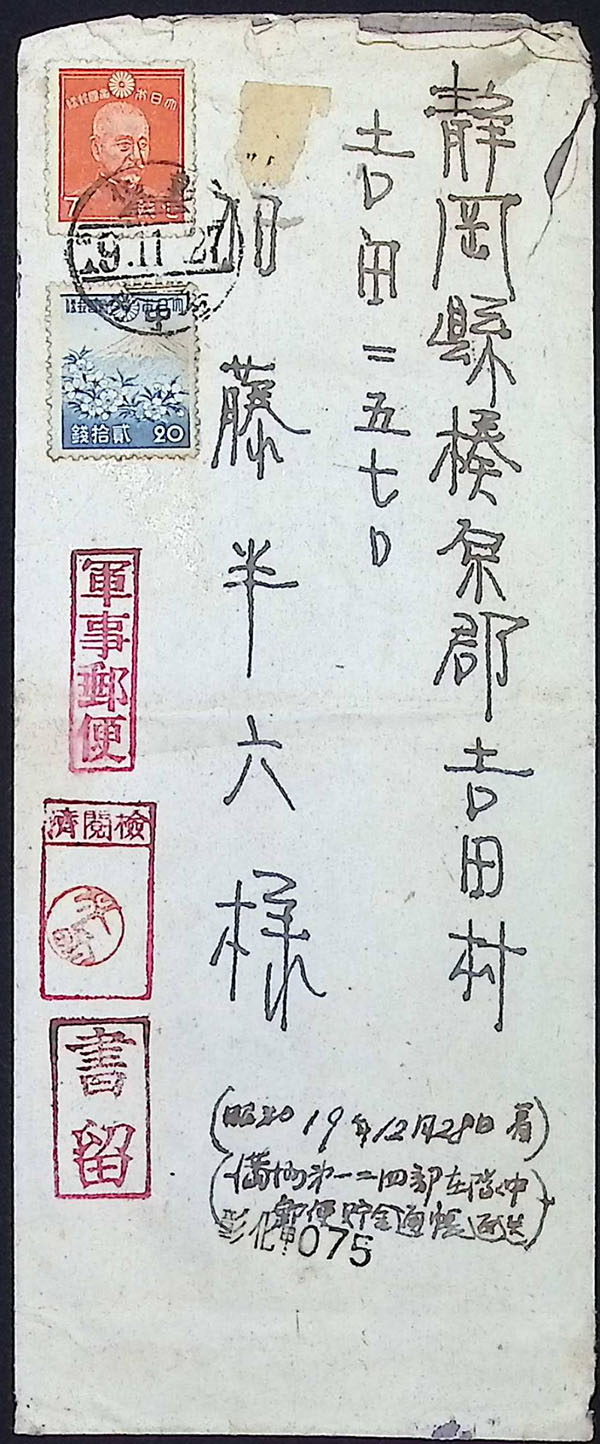 静岡縣榛原郡吉田村
吉田二五七〇
加藤半六様
大日本帝國郵便
七
7
19.11.27
大日本帝國郵便
貳拾錢
20
軍事郵便
檢閲濟
書留
(昭和19年12月28日着)
(満州第一二四部在隊中
郵便貯金通帳返送)
彰化
075